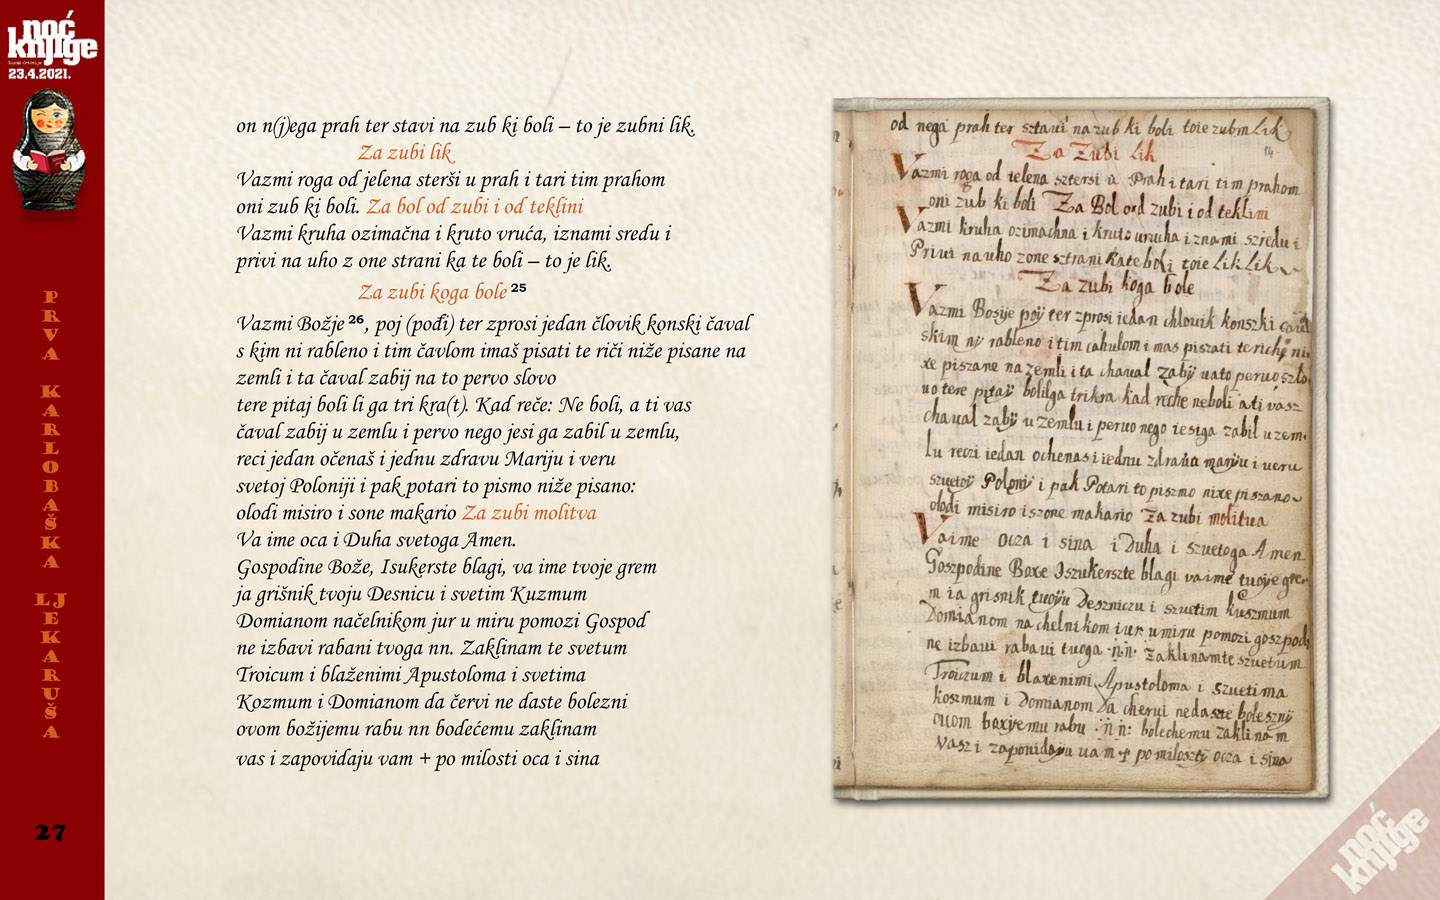 noć
knjige
23.4.2021.
PRVA KARLOBAŠKA LJEKARUŠA
27
on n(j)ega prah ter stavi na zub ki boli – to je zubni lik.
Za zubi lik
Vazmi roga od jelena sterši u prah i tari tim prahom
oni zub ki boli. Za bol od zubi i od teklini
Vazmi kruha ozimačna i kruto vruća, iznami sredu i
privi na uho z one strani ka te boli – to je lik.
Za zubi koga bole 25
Vazmi Božje 26, poj (pođi) ter zprosi jedan človik konski čaval
s kim ni rableno i tim čavlom imaš pisati te riči niže pisane na
zemli i ta čaval zabij na to pervo slovo
tere pitaj boli li ga tri kra(t). Kad reče: Ne boli, a ti vas
čaval zabij u zemlu i pervo nego jesi ga zabil u zemlu,
reci jedan očenaš i jednu zdravu Mariju i veru
svetoj Poloniji i pak potari to pismo niže pisano:
olodi misiro i sone makario Za zubi molitva
Va ime oca i Duha svetoga Amen.
Gospodine Bože, Isukerste blagi, va ime tvoje grem
ja grišnik tvoju Desnicu i svetim Kuzmum
Domianom načelnikom jur u miru pomozi Gospod
ne izbavi rabani tvoga nn. Zaklinam te svetum
Troicum i blaženimi Apustoloma i svetima
Kozmum i Domianom da červi ne daste bolezni
ovom božijemu rabu nn bodećemu zaklinam
vas i zapovidaju vam + po milosti oca i sina
od nega prah ter sztaui na zub ki boli toie zubni Lik
14.
Za Zubi Lik
Vazmi roga od ielena sztersi u Prah i tari tim prahom
oni zub ki boli Za Bol od zubi i od teklini
Vazmi kruha ozimachna i kruto urucha iznami szredu i
Priui na uho zone sztrani kate boli toie Lik Lik
Za zubi koga bole
Vazmi Bosije poÿ ter zprosi iedan chlouik konszki
skim nÿ rableno i tim cahulom imas piszati te riche ni
xe piszane na zemli i ta chaual zabÿ nato peruo szlo
uo tere pitaÿ boliliga trikra kad reche neboli ati vasz
chaual zabÿ u zemlu i peruo nego iesiga zabil uzem
lu reczi iedan ochenas i iednu zdraua mariju i ueru
szuetoÿ Polonÿ i pak Potari to piszmo nixe piszano
olodi misiro i szone makario Za zubi molitua
Vaime ocza i sina i Duha i szuetoga Amen
Goszpodine Boxe Iszukerszte blagi vaime tuoÿe gre
m ia grisnik tuoÿu Deszniczu i szuetim kuszmum
Domianom nachelnikom iur u miru pomozi goszpod
ne izbaui rabaui tuoga .n.n. zaklinamte szuetum
Troiczum i blaxenimi Apustoloma i szuetima
koszmum i Domianom Da cherui nedaszte boleznÿ
ouom boxÿemu rabu :n:n: bolechemu zaklinam
vasz i zapouidaÿu uam + po miloszti ocza i sina
noć
knjige